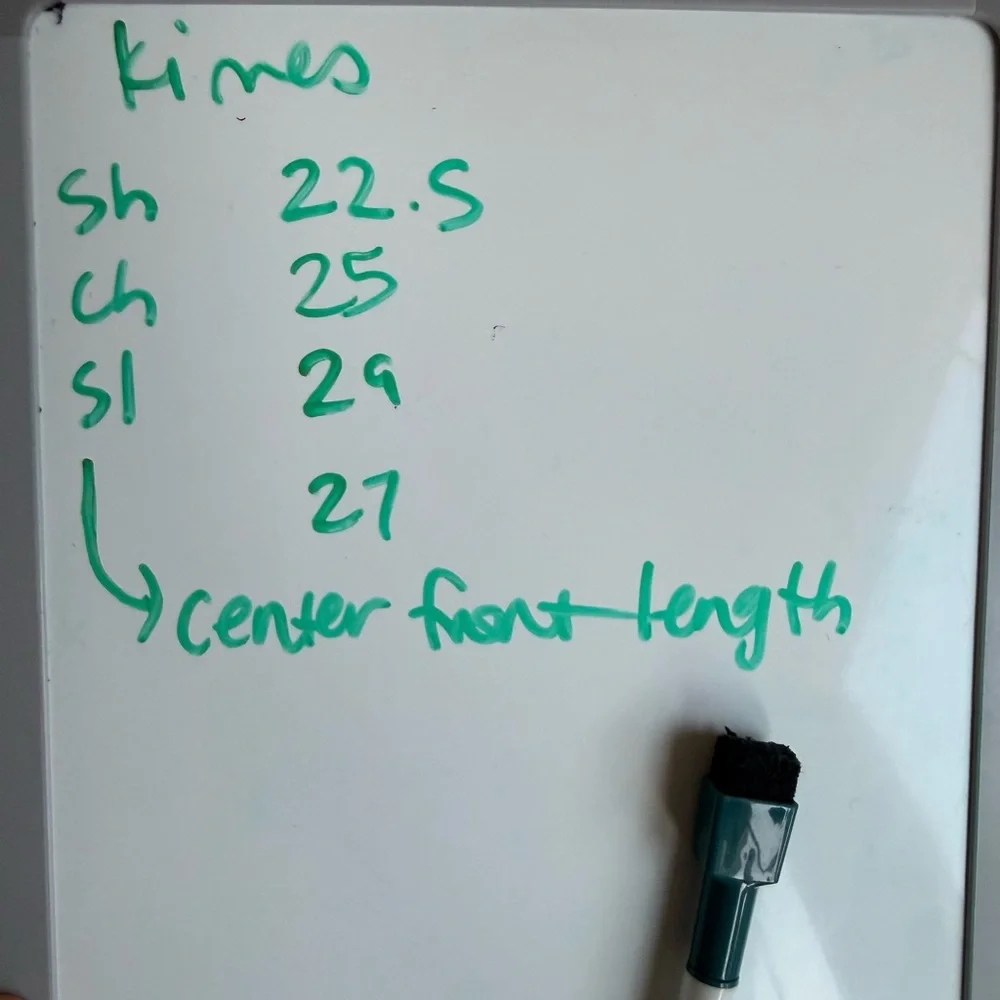 kimes
Sh 22.5
Ch 25
Sl 29
27
center front length